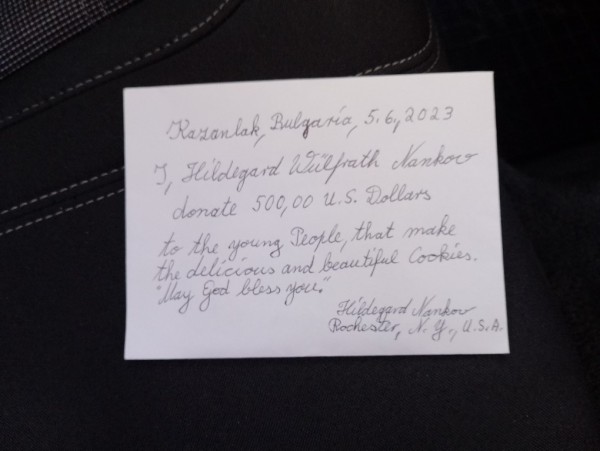 Kazanlak, Bulgaria, 5.6.,2023
I, Hildegard Wülfrath Nankov
donate 500,00 U.S. Dollars
to the young People, that make
the delicious and beautiful Cookies.
"May God bless you."
Hildegard Nankov
Rochester, N.Y., U.S.A.